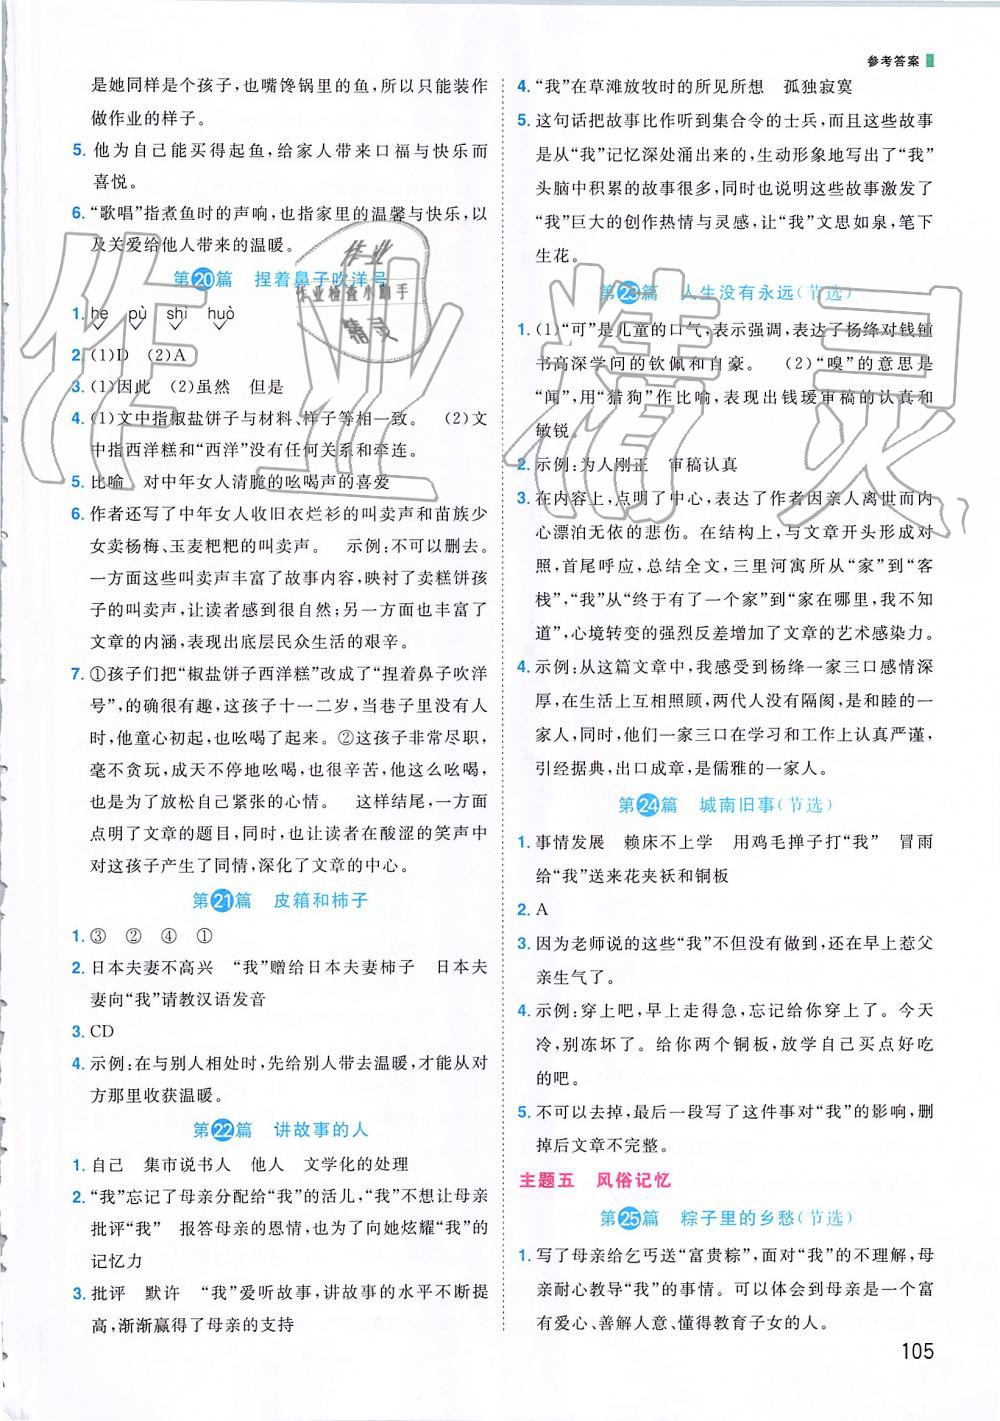 参考答案
是她同样是个孩子,也嘴馋锅里的鱼,所以只能装作
做作业的样子。
5. 他为自己能买得起鱼,给家人带来口福与快乐而
喜悦。
6. “歌唱”指煮鱼时的声响,也指家里的温馨与快乐,以
及关爱给他人带来的温暖。
第20篇 捏着鼻子吹洋号
1. he pù shì huò
2. (1)D (2)A
3. (1)因此 (2)虽然 但是
4. (1)文中指椒盐饼子与材料、样子等相一致。 (2)文
中指西洋糕和“西洋”没有任何关系和牵连。
5. 比喻 对中年女人清脆的吆喝声的喜爱
6. 作者还写了中年女人收旧衣烂衫的叫卖声和苗族少
女卖杨梅、玉麦粑粑的叫卖声。 示例:不可以删去。
一方面这些叫卖声丰富了故事内容,映衬了卖糕饼孩
子的叫卖声,让读者感到很自然;另一方面也丰富了
文章的内涵,表现出底层民众生活的艰辛。
7. ①孩子们把“椒盐饼子西洋糕”改成了“捏着鼻子吹洋
号”,的确很有趣,这孩子十一二岁,当巷子里没有人
时,他童心初起,也吆喝了起来。②这孩子非常尽职,
毫不贪玩,成天不停地吆喝,也很辛苦,他这么喊叫,
也是为了放松自己紧张的心情。 这样结尾,一方面
点明了文章的题目,同时,也让读者在酸涩的笑声中
对这孩子产生了同情,深化了文章的中心。
第21篇 皮箱和柿子
1. ③ ② ④ ①
2. 日本夫妻不高兴 “我”赠给日本夫妻柿子 日本夫
妻向“我”请教汉语发音
3. CD
4. 示例:在与别人相处时,先给别人带去温暖,才能从对
方那里收获温暖。
第22篇 讲故事的人
1. 自己 集市说书人 他人 文学化的处理
2. “我”忘记了母亲分配给“我”的活儿,“我”不想让母亲
批评“我” 报答母亲的恩情,也为了向她炫耀“我”的
记忆力
3. 批评 默许 “我”爱听故事,讲故事的水平不断提
高,渐渐赢得了母亲的支持
4. “我”在草滩放牧时的所见所想 孤独寂寞
5. 这句话把故事比作听到集合令的士兵,而且这些故事
是从“我”记忆深处涌出来的,生动形象地写出了“我”
头脑中积累的故事很多,同时也说明这些故事激发了
“我”巨大的创作热情与灵感,让“我”文思如泉,笔下
生花。
第23篇 人生没有永远(节选)
1. (1)“可”是儿童的口气,表示强调,表达了杨绛对钱锺
书高深学问的钦佩和自豪。 (2)“嗅”的意思是
“闻”,用“猎狗”作比喻,表现出钱瑗审稿的认真和
敏锐。
2. 示例:为人刚正 审稿认真
3. 在内容上,点明了中心,表达了作者因亲人离世而内
心漂泊无依的悲伤。在结构上,与文章开头形成对
照,首尾呼应,总结全文,三里河寓所从“家”到“客
栈”,“我”从“终于有了一个家”到“家在哪里,我不知
道”,心境转变的强烈反差增加了文章的艺术感染力。
4. 示例:从这篇文章中,我感受到杨绛一家三口感情深
厚,在生活上互相照顾,两代人没有隔阂,是和睦的一
家人,同时,他们一家三口在学习和工作上认真严谨,
引经据典,出口成章,是儒雅的一家人。
第24篇 城南旧事(节选)
1. 事情发展 赖床不上学 用鸡毛掸子打“我” 冒雨
给“我”送来花夹袄和铜板
2. A
3. 因为老师说的这些“我”不但没有做到,还在早上惹父
亲生气了。
4. 示例:穿上吧,早上走得急,忘记给你穿上了。今天
冷,别冻坏了。给你两个铜板,放学自己买点好吃
的吧。
5. 不可以去掉,最后一段写了这件事对“我”的影响,删
掉后文章不完整。
主题五 风俗记忆
第25篇 粽子里的乡愁(节选)
1. 写了母亲给乞丐送“富贵粽”,面对“我”的不理解,母
亲耐心教导“我”的事情。可以体会到母亲是一个富
有爱心、善解人意、懂得教育子女的人。
105
作业精灵
作业
作业检查小助手
精灵